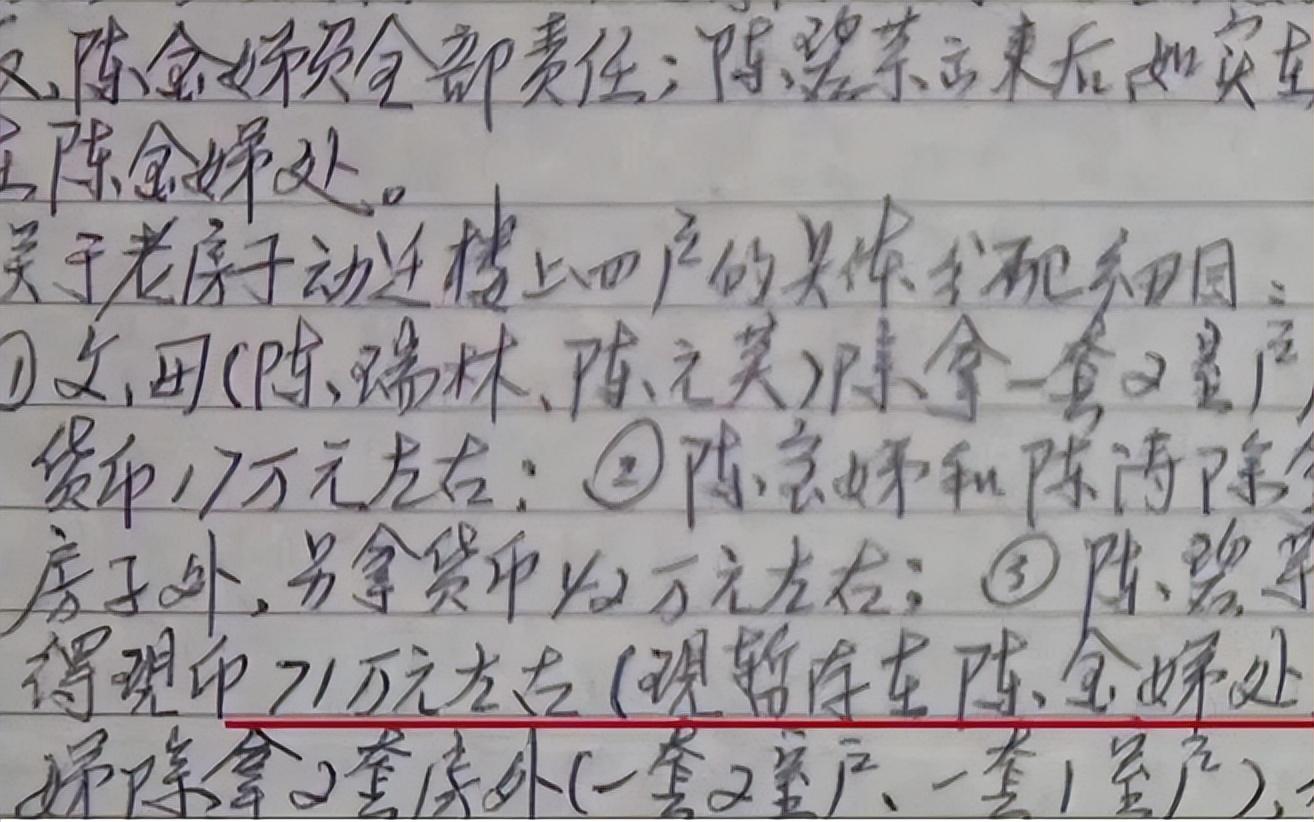 陈金娣负全部责任；陈碧芬云来后如实
陈金娣处。
关于老房子动迁楼上四户的具体分配细目：
①父、母(陈瑞林、陈元英)除拿一套2室户
货币17万元左右；②陈宝娣和陈涛除
房子外，另拿货币42万元左右；③陈碧
得现币71万元左右(现暂存在陈金娣处
娣除拿2套房外(一套2室户、一套1室户)，